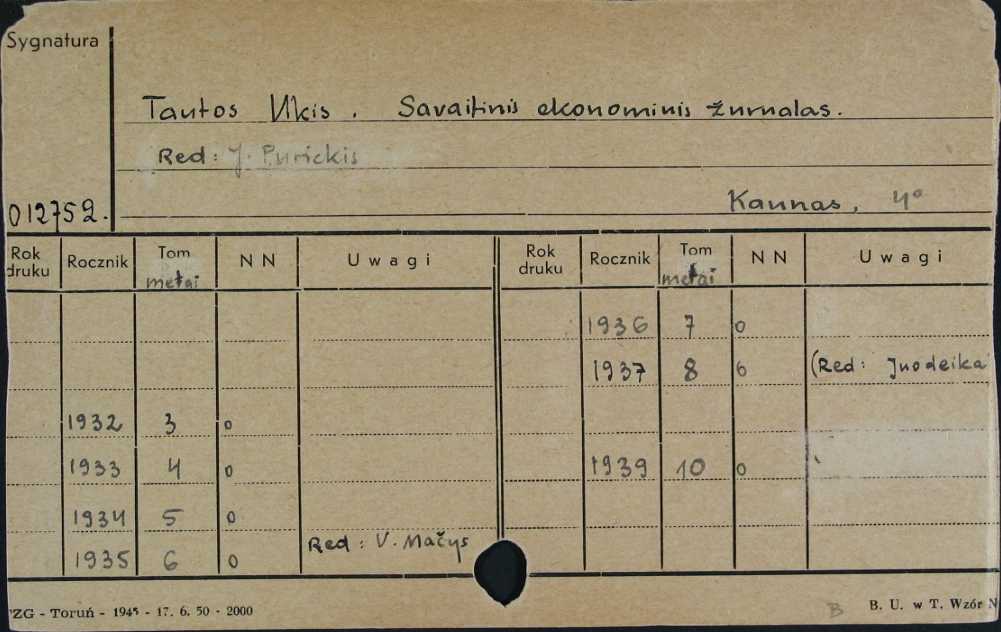 Sygnatura
Tautos Ukis. Savaitinis ekonominis žurnalas.
Red: J. Purickis
012752.
Kaunas, 4°
Rok druku Rocznik Tom metai NN Uwagi Rok druku Rocznik Tom metai NN Uwagi
1936 7 o
1937 8 o (Red: Juodeika
1932 3 o
1933 4 o 1939 10 o
1934 5 o
1935 6 o Red: V. Mačys
ZG - Toruń - 1945 - 17. 6. 50 - 2000
B
B. U. w T. Wzór N